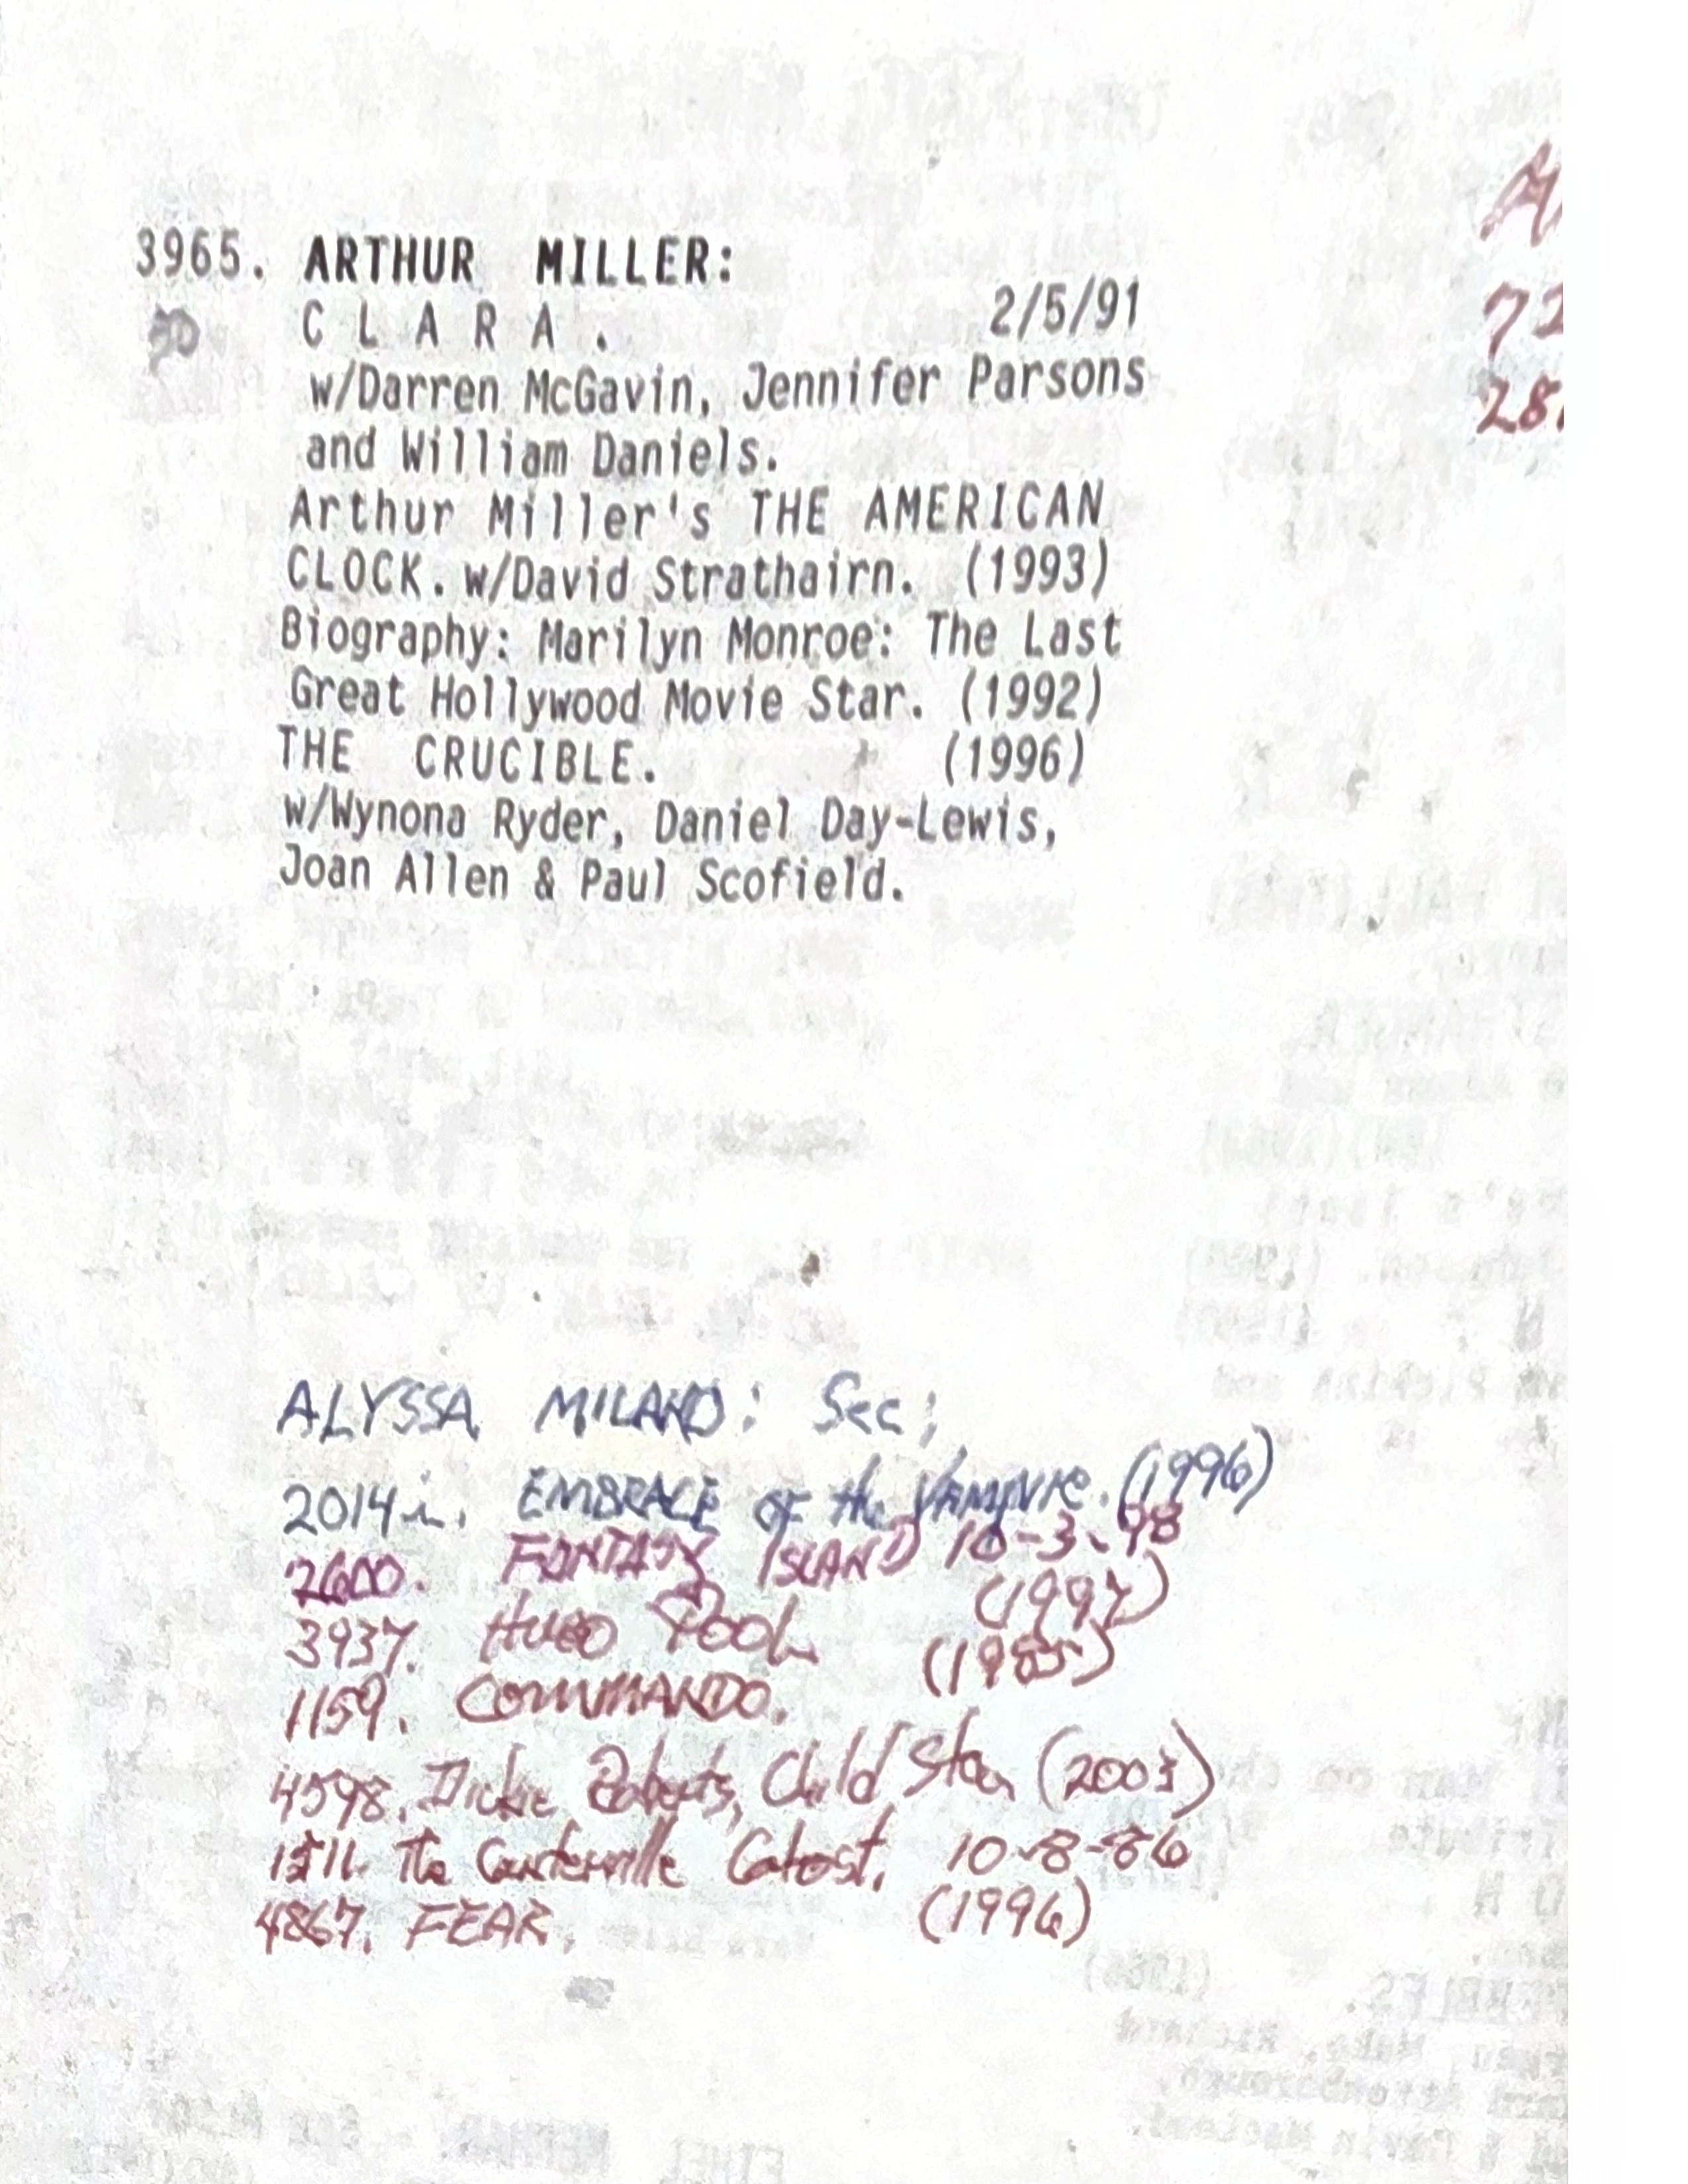 3965. ARTHUR MILLER:
C L A R A . 2/5/91
w/Darren McGavin, Jennifer Parsons
and William Daniels.
Arthur Miller's THE AMERICAN
CLOCK. w/David Strathairn. (1993)
Biography: Marilyn Monroe: The Last
Great Hollywood Movie Star. (1992)
THE CRUCIBLE. (1996)
w/Wynona Ryder, Daniel Day-Lewis,
Joan Allen & Paul Scofield.
ALYSSA MILANO: See:
2014i. EMBRACE OF the VAMPYRE. (1996)
2600. FANTASY ISLAND 10-3-98
3937. HUGO POOL (1997)
1159. COMMANDO. (1985)
4598. Dickie Roberts, Child Star (2003)
1511. The Canterville Ghost. 10-8-86
4867. FEAR. (1996)
72
28